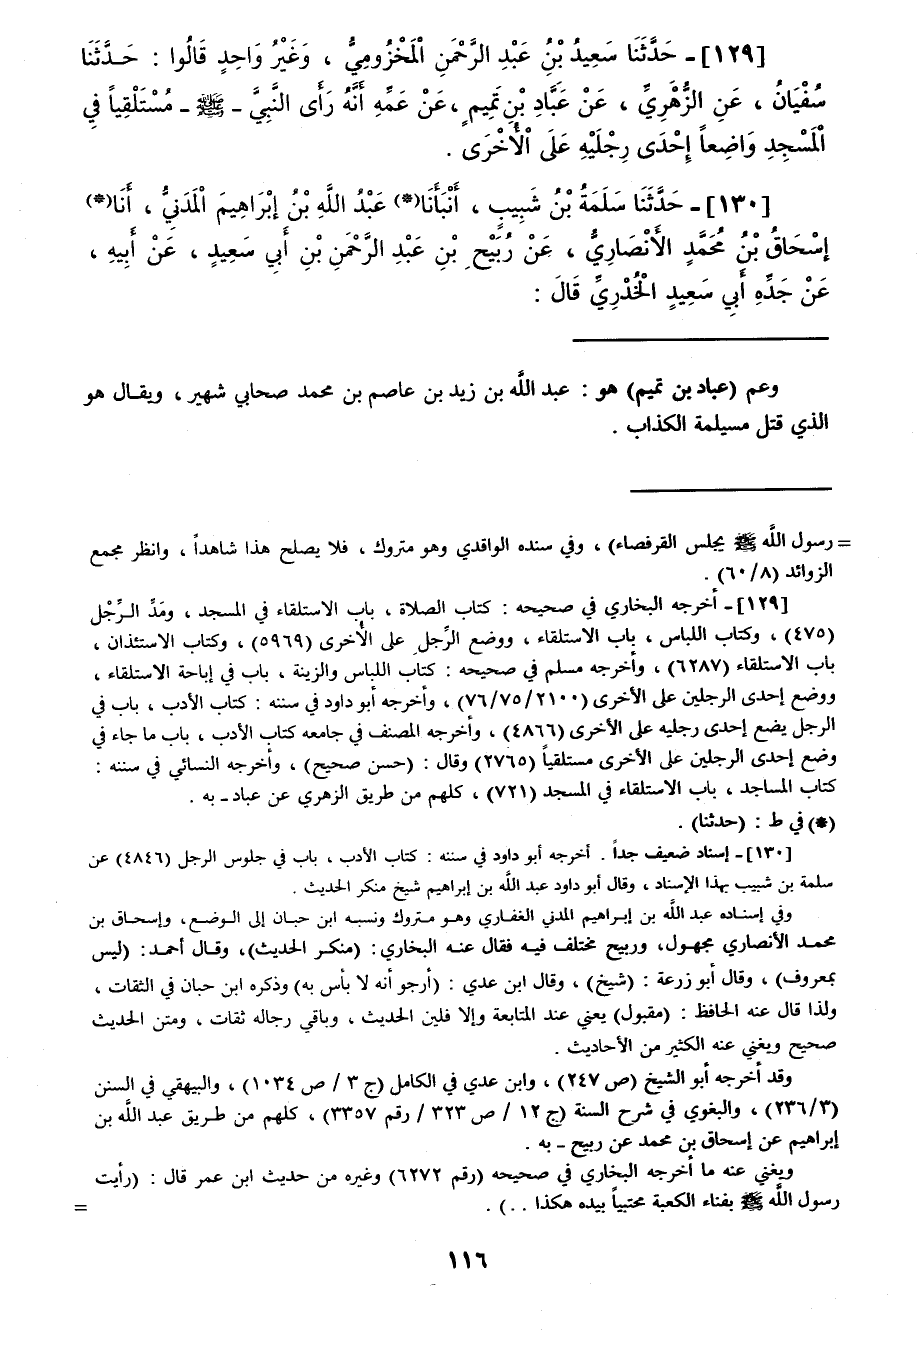 [١٢٩] ـ حَدَّثَنَا سَعِيدُ بْنُ عَبْدِ الرَّحْمَنِ الْمَخْزُومِيُّ ، وَغَيْرُ وَاحِدٍ قَالُوا : حَـدَّثَنَا
سُفْيَانُ ، عَنِ الزُّهْرِيِّ ، عَنْ عَبَّادِ بْنِ تَمِيمٍ ، عَنْ عَمِّهِ أَنَّهُ رَأَى النَّبِيَّ ـ ﷺ ـ مُسْتَلْقِياً فِي
الْمَسْجِدِ وَاضِعاً إِحْدَى رِجْلَيْهِ عَلَى الْأُخْرَى .
[١٣٠] ـ حَدَّثَنَا سَلَمَةُ بْنُ شَبِيبٍ ، أَنْبَأَنَا(*) عَبْدُ اللَّهِ بْنُ إِبْرَاهِيمَ الْمَدَنِيُّ ، أَنَا(*)
إِسْحَاقُ بْنُ مُحَمَّدٍ الأَنْصَارِيُّ ، عَنْ رُبَيْحِ بْنِ عَبْدِ الرَّحْمَنِ بْنِ أَبِي سَعِيدٍ ، عَنْ أَبِيهِ ،
عَنْ جَدِّهِ أَبِي سَعِيدٍ الْخُدْرِيِّ قَالَ :
وعم (عباد بن تميم) هو : عبد اللَّه بن زيد بن عاصم بن محمد صحابي شهير ، ويقـال هو
الذي قتل مسيلمة الكذاب .
= رسول اللَّه ﷺ يجلس القرفصاء) ، وفي سنده الواقدي وهو متروك ، فلا يصلح هذا شاهداً ، وانظر مجمع
الزوائد (٦٠/٨) .
[١٢٩] ـ أخرجه البخاري في صحيحه : كتاب الصلاة ، باب الاستلقاء في المسجد ، ومَدِّ الـرِّجْل
(٤٧٥) ، وكتاب اللباس ، باب الاستلقاء ، ووضع الرِّجل على الأُخرى (٥٩٦٩) ، وكتاب الاستئذان ،
باب الاستلقاء (٦٢٨٧) ، وأخرجه مسلم في صحيحه : كتاب اللباس والزينة ، باب في إباحة الاستلقاء ،
ووضع إحدى الرجلين على الأخرى (٧٦/٧٥/٢١٠٠) ، وأخرجه أبو داود في سننه : كتاب الأدب ، باب في
الرجل يضع إحدى رجليه على الأخرى (٤٨٦٦) ، وأخرجه المصنف في جامعه كتاب الأدب ، باب ما جاء في
وضع إحدى الرجلين على الأخرى مستلقياً (٢٧٦٥) وقال : (حسن صحيح) ، وأخرجه النسائي في سننه :
كتاب المساجد ، باب الاستلقاء في المسجد (٧٢١) ، كلهم من طريق الزهري عن عباد ـ به .
(*) في ط : (حدثنا) .
[١٣٠] ـ إسناد ضعيف جداً . أخرجه أبو داود في سننه : كتاب الأدب ، باب في جلوس الرجل (٤٨٤٦) عن
سلمة بن شبيب بهذا الإسناد ، وقال أبو داود عبد اللَّه بن إبراهيم شيخ منكر الحديث .
وفي إسناده عبد اللَّه بن إبراهيم المدني الغفاري وهو متروك ونسبه ابن حبان إلى الوضع، وإسحاق بن
محمد الأنصاري مجهول، وربيح مختلف فيه فقال عنه البخاري: (منكر الحديث)، وقال أحمد: (ليس
بمعروف) ، وقال أبو زرعة : (شيخ) ، وقال ابن عدي : (أرجو أنه لا بأس به) وذكره ابن حبان في الثقات ،
ولذا قال عنه الحافظ : (مقبول) يعني عند المتابعة وإلا فلين الحديث ، وباقي رجاله ثقات ، ومتن الحديث
صحيح ويغني عنه الكثير من الأحاديث .
وقد أخرجه أبو الشيخ (ص ٢٤٧) ، وابن عدي في الكامل (ج ٣ / ص ١٠٣٤) ، والبيهقي في السنن
(٢٣٦/٣) ، والبغوي في شرح السنة (ج ١٢ / ص ٣٢٣ / رقم ٣٣٥٧) ، كلهم من طـريق عبد اللَّه بن
إبراهيم عن إسحاق بن محمد عن ربيح ـ به .
ويغني عنه ما أخرجه البخاري في صحيحه (رقم ٦٢٧٢) وغيره من حديث ابن عمر قال : (رأيت
رسول اللَّه ﷺ بفناء الكعبة محتبياً بيده هكذا . . ) . =
١١٦